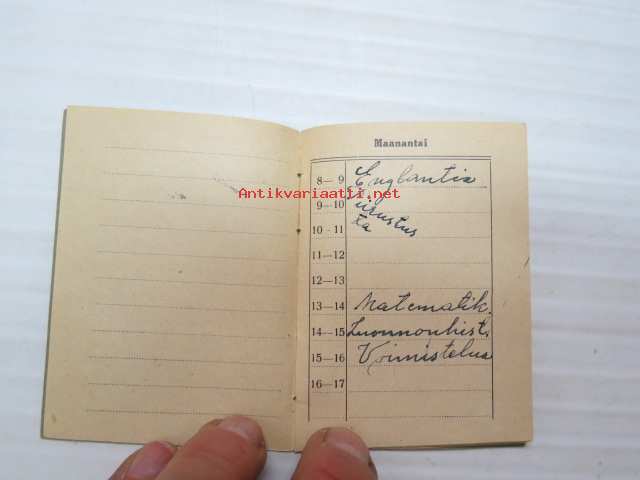 Maanantai
8—9 Englantia
Antikvariaatti.net
9—10 Piirustus
10-11 ta
11—12
12—13
13—14 Matematik.
14—15 Luonnonhist.
15—16 Voimistelua
16—17